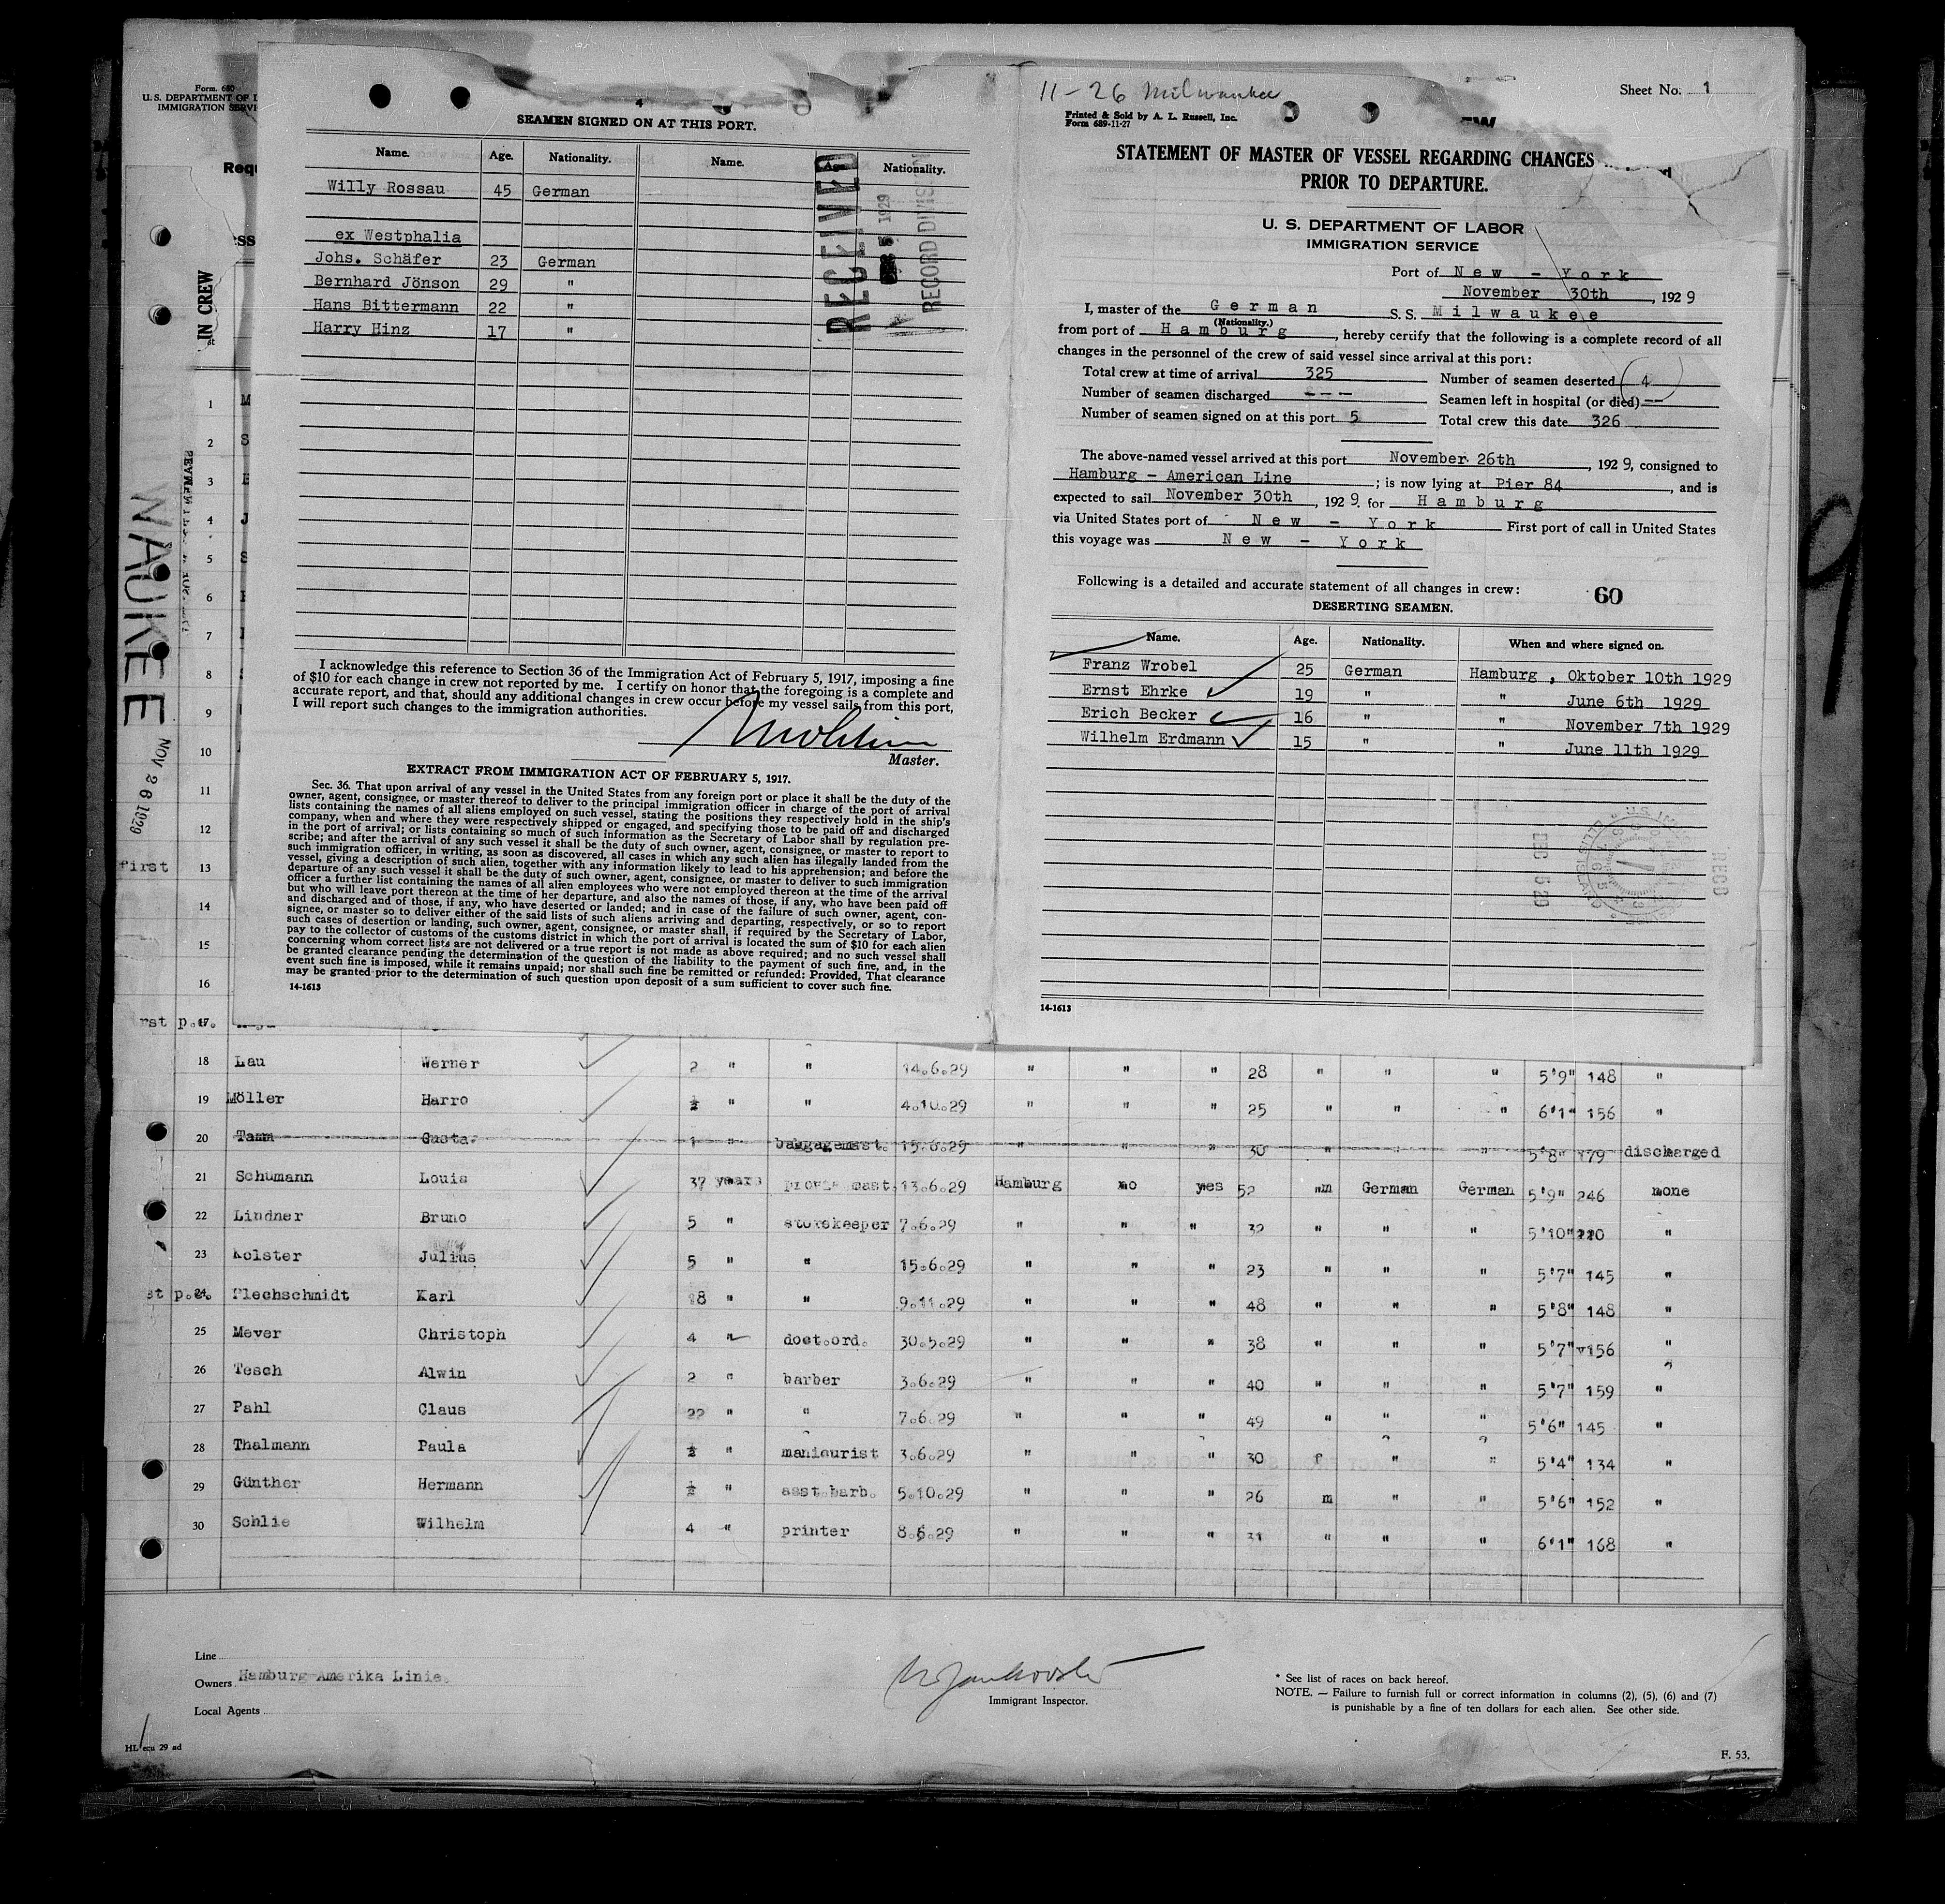 Form. 680
U. S. DEPARTMENT OF
IMMIGRATION
IN CREW
WAUKEE
NOV 26 1929
4
SEAMEN SIGNED ON AT THIS PORT.
Name. Age. Nationality. Name. Age. Nationality.
Willy Rossau 45 German
ex Westphalia
Johs. Schäfer 23 German
Bernhard Jönson 29 "
Hans Bittermann 22 "
Harry Hinz 17 "
RECEIVED
DEC 5 1929
RECORD DIVISION
I acknowledge this reference to Section 36 of the Immigration Act of February 5, 1917, imposing a fine
of $10 for each change in crew not reported by me. I certify on honor that the foregoing is a complete and
accurate report, and that, should any additional changes in crew occur before my vessel sails from this port,
I will report such changes to the immigration authorities.
Master.
EXTRACT FROM IMMIGRATION ACT OF FEBRUARY 5, 1917.
Sec. 36. That upon arrival of any vessel in the United States from any foreign port or place it shall be the duty of the
owner, agent, consignee, or master thereof to deliver to the principal immigration officer in charge of the port of arrival
lists containing the names of all aliens employed on such vessel, stating the positions they respectively hold in the ship's
company, when and where they were respectively shipped or engaged, and specifying those to be paid off and discharged
in the port of arrival; or lists containing so much of such information as the Secretary of Labor shall by regulation pre-
scribe; and after the arrival of any such vessel it shall be the duty of such owner, agent, consignee, or master to report to
such immigration officer, in writing, as soon as discovered, all cases in which any such alien has illegally landed from the
vessel, giving a description of such alien, together with any information likely to lead to his apprehension; and before the
departure of any such vessel it shall be the duty of such owner, agent, consignee, or master to deliver to such immigration
officer a further list containing the names of all alien employees who were not employed thereon at the time of the arrival
but who will leave port thereon at the time of her departure, and also the names of those, if any, who have been paid off
and discharged and of those, if any, who have deserted or landed; and in case of the failure of such owner, agent, con-
signee, or master so to deliver either of the said lists of such aliens arriving and departing, respectively, or so to report
such cases of desertion or landing, such owner, agent, consignee, or master shall, if required by the Secretary of Labor,
pay to the collector of customs of the customs district in which the port of arrival is located the sum of $10 for each alien
concerning whom correct lists are not delivered or a true report is not made as above required; and no such vessel shall
be granted clearance pending the determination of the question of the liability to the payment of such fine, and, in the
event such fine is imposed, while it remains unpaid; nor shall such fine be remitted or refunded: Provided, That clearance
may be granted prior to the determination of such question upon deposit of a sum sufficient to cover such fine.
14-1613
11-26 Milwaukee
Sheet No. 1
Printed & Sold by A. L. Russell, Inc.
Form 689-11-27
STATEMENT OF MASTER OF VESSEL REGARDING CHANGES
PRIOR TO DEPARTURE.
U. S. DEPARTMENT OF LABOR
IMMIGRATION SERVICE
Port of New - York
November 30th, 1929
I, master of the German S.S. Milwaukee
(Nationality.)
from port of Hamburg, hereby certify that the following is a complete record of all
changes in the personnel of the crew of said vessel since arrival at this port:
Total crew at time of arrival 325 Number of seamen deserted 4
Number of seamen discharged --- Seamen left in hospital (or died) --
Number of seamen signed on at this port 5 Total crew this date 326
The above-named vessel arrived at this port November 26th, 1929, consigned to
Hamburg - American Line; is now lying at Pier 84, and is
expected to sail November 30th, 1929. for Hamburg
via United States port of New - York First port of call in United States
this voyage was New - York
Following is a detailed and accurate statement of all changes in crew: 60
DESERTING SEAMEN.
Name. Age. Nationality. When and where signed on.
Franz Wrobel 25 German Hamburg, Oktober 10th 1929
Ernst Ehrke 19 " " June 6th 1929
Erich Becker 16 " " November 7th 1929
Wilhelm Erdmann 15 " " June 11th 1929
DEC 5 29
RECD
14-1613
1
2
3
4
5
6
7
8
9
10
11
12
first 13
14
15
16
17
18 Lau Werner 2 " " 14.6.29 " " " 28 " " " 5'9" 148 "
19 Möller Harro ½ " " 4.10.29 " " " 25 " " " 6'1" 156 "
20 Tamm Gustav 1 " baggagemast. 15.6.29 " " " 30 " " " 5'8" 179 discharged
21 Schumann Louis 37 years provis mast. 13.6.29 Hamburg no yes 52 m German German 5'9" 246 none
22 Lindner Bruno 5 " storekeeper 7.6.29 " " " 32 " " " 5'10" 220 "
23 Kolster Julius 5 " " 15.6.29 " " " 23 " " " 5'7" 145 "
24 Flechschmidt Karl 18 " " 9.11.29 " " " 48 " " " 5'8" 148 "
25 Meyer Christoph 4 " doct.ord. 30.5.29 " " " 38 " " " 5'7" 156 "
26 Tesch Alwin 2 " barber 3.6.29 " " " 40 " " " 5'7" 159 "
27 Pahl Claus 22 " " 7.6.29 " " " 49 " " " 5'6" 145 "
28 Thalmann Paula ½ " manicurist 3.6.29 " " " 30 f " " 5'4" 134 "
29 Günther Hermann ½ " asst.barb. 5.10.29 " " " 26 m " " 5'6" 152 "
30 Schlie Wilhelm 4 " printer 8.6.29 " " " 31 " " " 6'1" 168 "
Line
Owners Hamburg-Amerika Linie.
Local Agents
Immigrant Inspector.
* See list of races on back hereof.
NOTE. — Failure to furnish full or correct information in columns (2), (5), (6) and (7)
is punishable by a fine of ten dollars for each alien. See other side.
HL ecu 29 ad
F. 53.